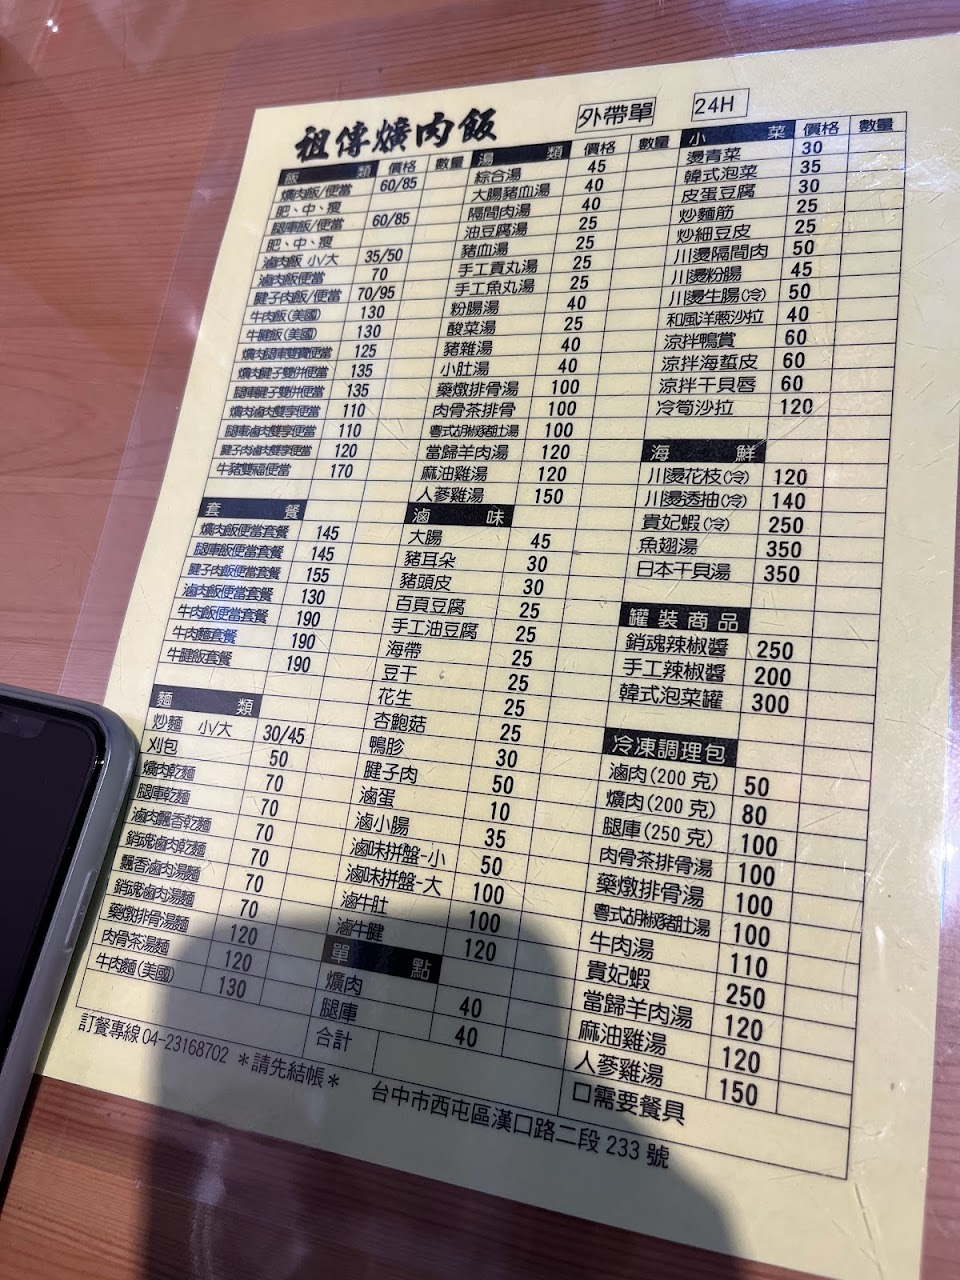 祖傳爌肉飯
外帶單
24H
飯類 價格 數量
爌肉飯/便當 60/85
肥、中、瘦
腿庫飯/便當 60/85
肥、中、瘦
滷肉飯 小/大 35/50
滷肉飯便當 70
腱子肉飯/便當 70/95
牛肉飯(美國) 130
牛腱飯(美國) 130
爌肉腿庫雙寶便當 125
爌肉腱子雙併便當 135
腿庫腱子雙併便當 135
爌肉滷肉雙享便當 110
腿庫滷肉雙享便當 110
腱子肉滷肉雙享便當 120
牛豬雙福便當 170
套餐
爌肉飯便當套餐 145
腿庫飯便當套餐 145
腱子肉飯便當套餐 155
滷肉飯便當套餐 130
牛肉飯便當套餐 190
牛肉麵套餐 190
牛腱飯套餐 190
麵類
炒麵 小/大 30/45
刈包 50
爌肉乾麵 70
腿庫乾麵 70
滷肉飄香乾麵 70
銷魂滷肉乾麵 70
飄香滷肉湯麵 70
銷魂滷肉湯麵 70
藥燉排骨湯麵 120
肉骨茶湯麵 120
牛肉麵(美國) 130
湯類 價格 數量
綜合湯 45
大腸豬血湯 40
隔間肉湯 40
油豆腐湯 25
豬血湯 25
手工貢丸湯 25
手工魚丸湯 25
粉腸湯 40
酸菜湯 25
豬雜湯 40
小肚湯 40
藥燉排骨湯 100
肉骨茶排骨 100
粵式胡椒豬肚湯 100
當歸羊肉湯 120
麻油雞湯 120
人蔘雞湯 150
滷味
大腸 45
豬耳朵 30
豬頭皮 30
百頁豆腐 25
手工油豆腐 25
海帶 25
豆干 25
花生 25
杏鮑菇 25
鴨胗 30
腱子肉 50
滷蛋 10
滷小腸 35
滷味拼盤-小 50
滷味拼盤-大 100
滷牛肚 100
滷牛腱 120
單點
爌肉 40
腿庫 40
合計
小菜 價格 數量
燙青菜 30
韓式泡菜 35
皮蛋豆腐 30
炒麵筋 25
炒細豆皮 25
川燙隔間肉 50
川燙粉腸 45
川燙生腸(冷) 50
和風洋蔥沙拉 40
涼拌鴨賞 60
涼拌海蜇皮 60
涼拌干貝唇 60
冷筍沙拉 120
海鮮
川燙花枝(冷) 120
川燙透抽(冷) 140
貴妃蝦(冷) 250
魚翅湯 350
日本干貝湯 350
罐裝商品
銷魂辣椒醬 250
手工辣椒醬 200
韓式泡菜罐 300
冷凍調理包
滷肉(200克) 50
爌肉(200克) 80
腿庫(250克) 100
肉骨茶排骨湯 100
藥燉排骨湯 100
粵式胡椒豬肚湯 100
牛肉湯 110
貴妃蝦 250
當歸羊肉湯 120
麻油雞湯 120
人蔘雞湯 150
口需要餐具
訂餐專線 04-23168702 *請先結帳* 台中市西屯區漢口路二段 233 號